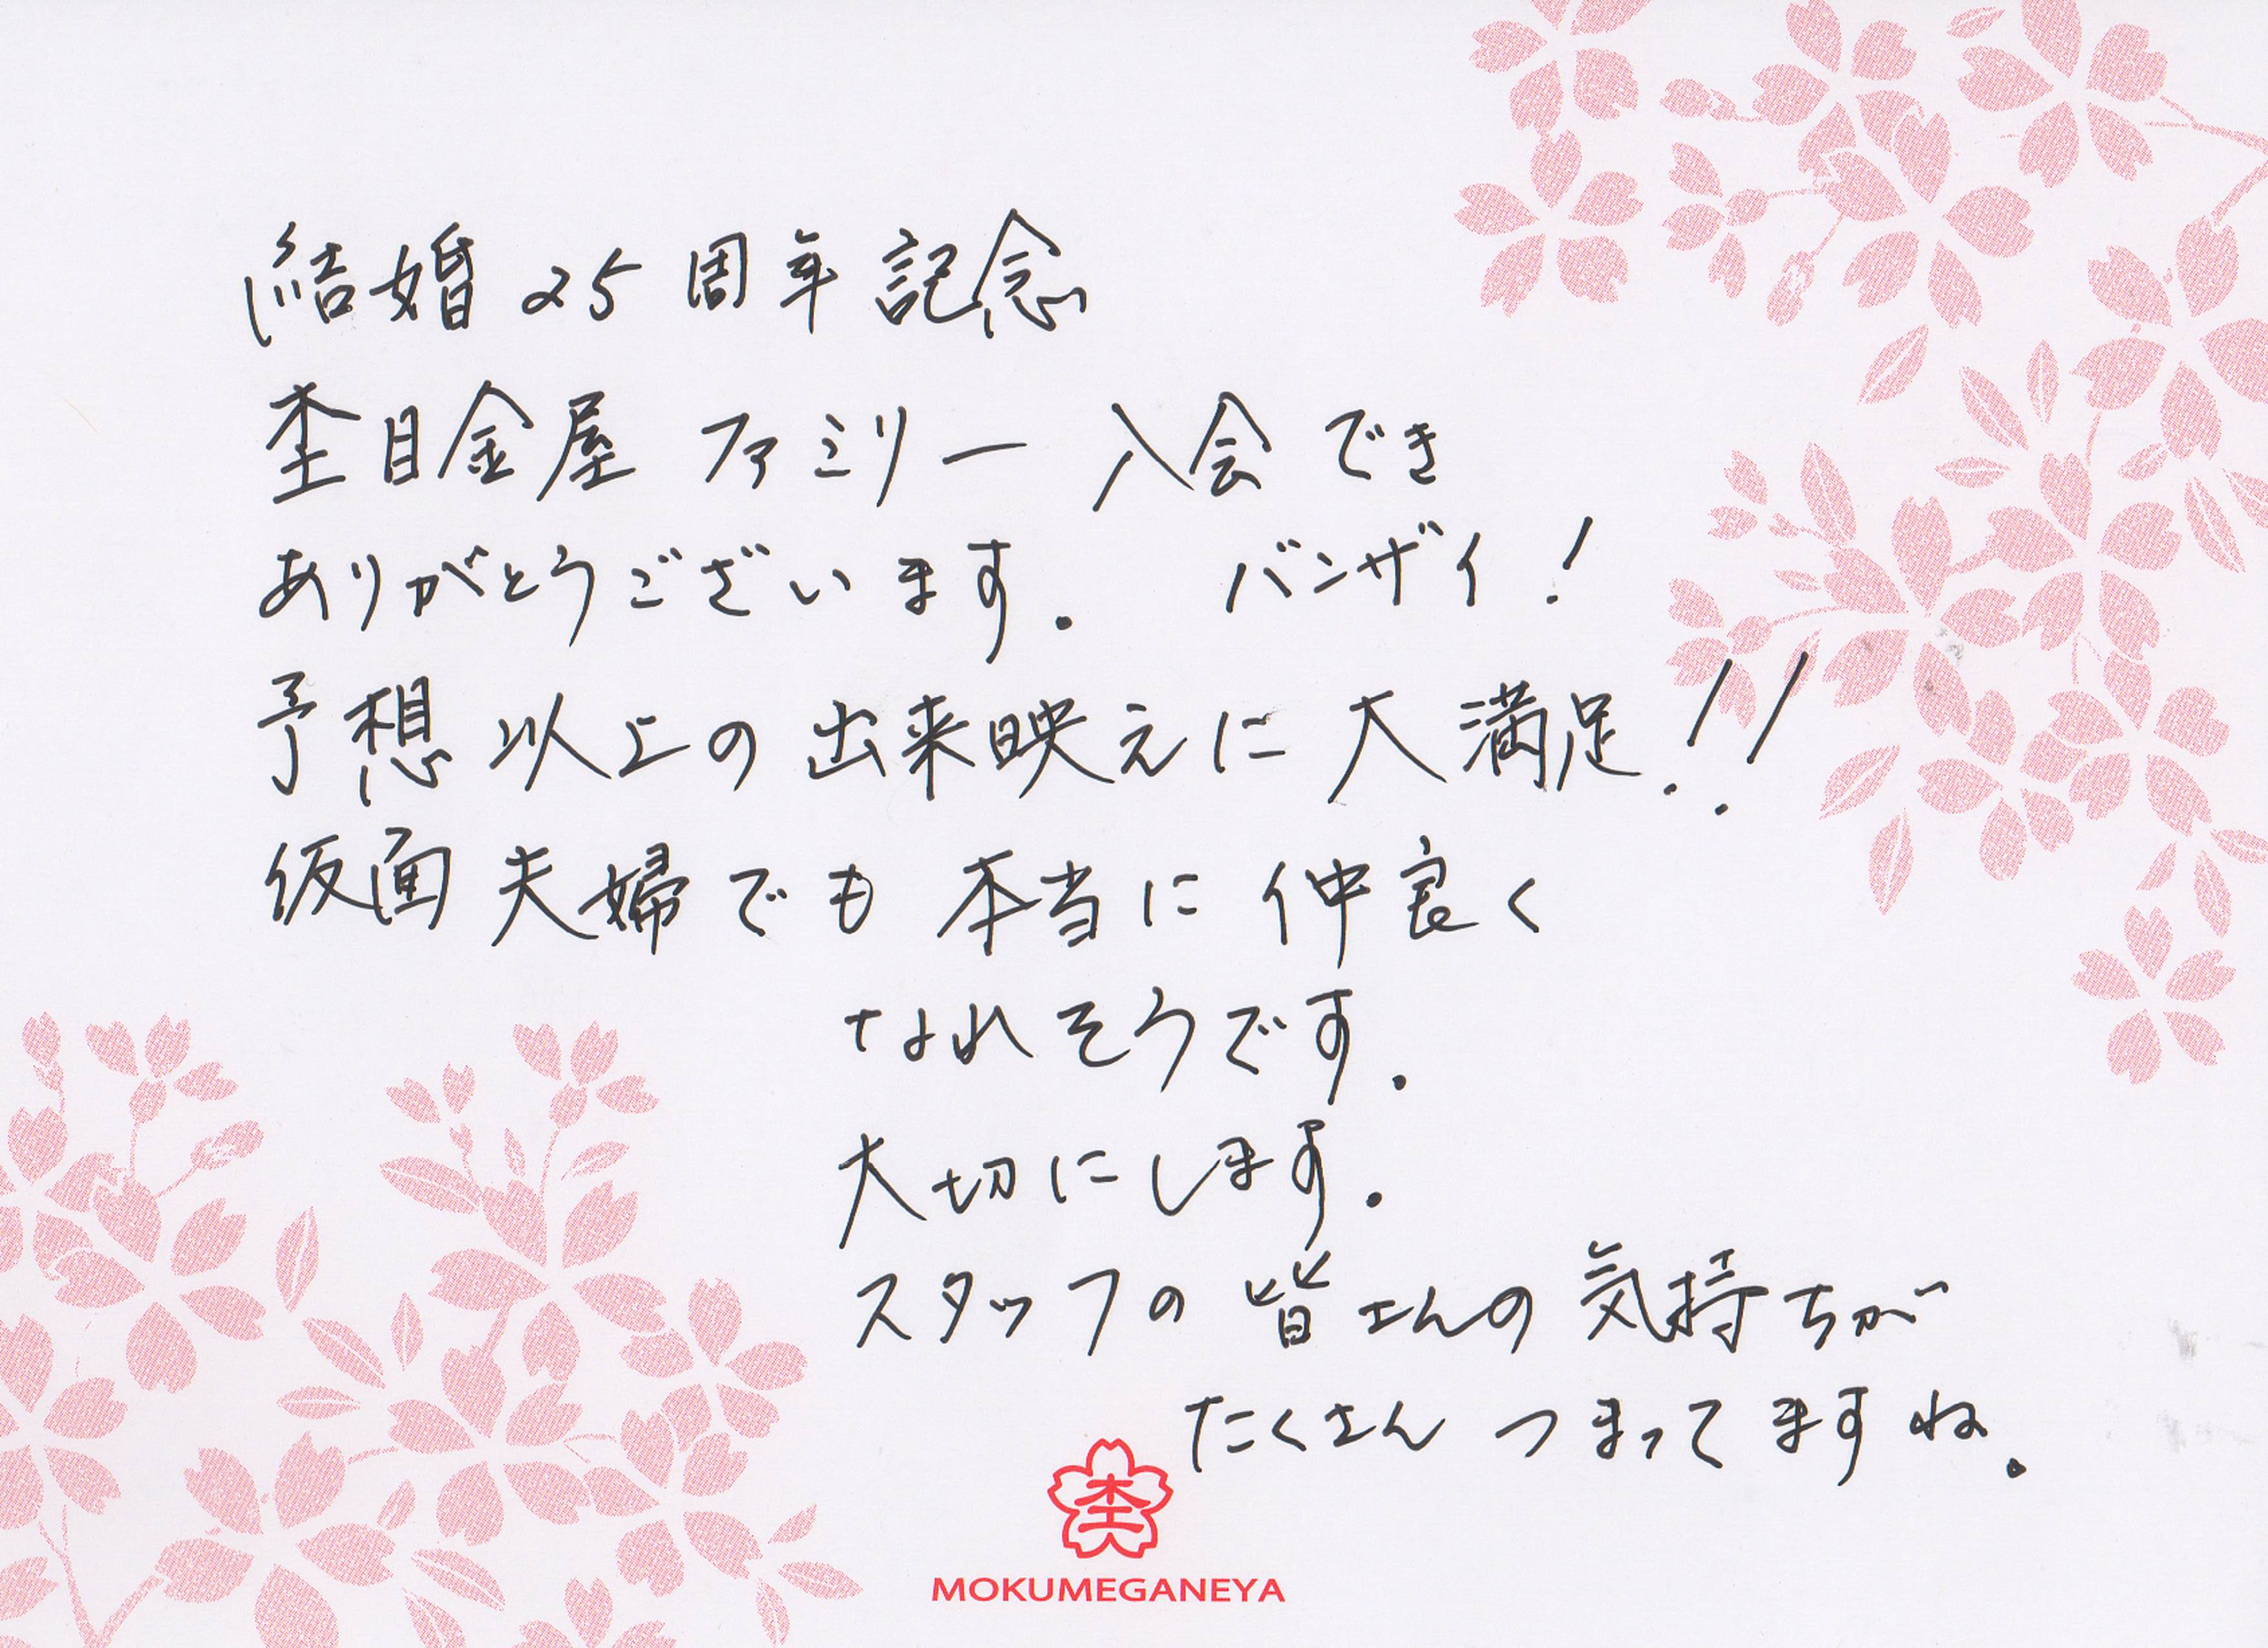 結婚25周年記念
杢目金屋 ファミリー 入会でき
ありがとうございます. バンザイ!
予想以上の出来映えに大満足!!
仮面夫婦でも本当に仲良く
なれそうです.
大切にします.
スタッフの皆さんの気持ちが
たくさんつまってますね.
杢
MOKUMEGANEYA